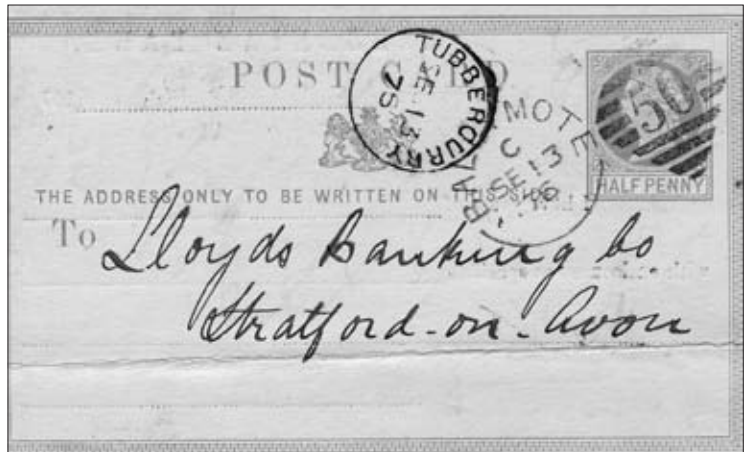 POST CARD
TUBBERCURRY
SE 13
75
MOTE
C
SE 13
50
HALFPENNY
THE ADDRESS ONLY TO BE WRITTEN ON THIS SIDE.
To
Lloyds Banking Co
Stratford-on-Avon